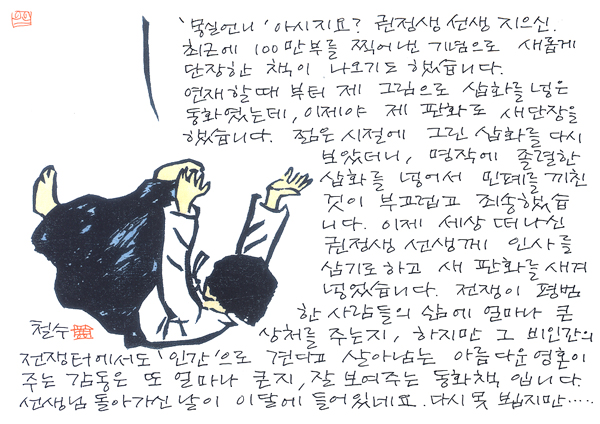 '몽실언니' 아시지요? 권정생 선생 지으신.
최근에 100만부를 찍어낸 기념으로 새롭게
단장한 책이 나오기도 했습니다.
연재할 때 부터 제 그림으로 삽화를 넣은
동화였는데, 이제야 제 판화로 새단장을
했습니다. 젊은 시절에 그린 삽화를 다시
보았더니, 명작에 졸렬한
삽화를 넣어서 민폐를 끼친
것이 부끄럽고 죄송했습
니다. 이제 세상 떠나신
권정생 선생께 인사를
삼기로 하고 새 판화를 새겨
넣었습니다. 전쟁이 평범
한 사람들의 삶에 얼마나 큰
철수 상처를 주는지, 하지만 그 비인간의
전쟁터에서도 '인간'으로 견디고 살아남는 아름다운 영혼이
주는 감동은 또 얼마나 큰지, 잘 보여주는 동화책 입니다.
선생님 돌아가신 날이 이달에 들어있네요. 다시 못 뵙지만·····